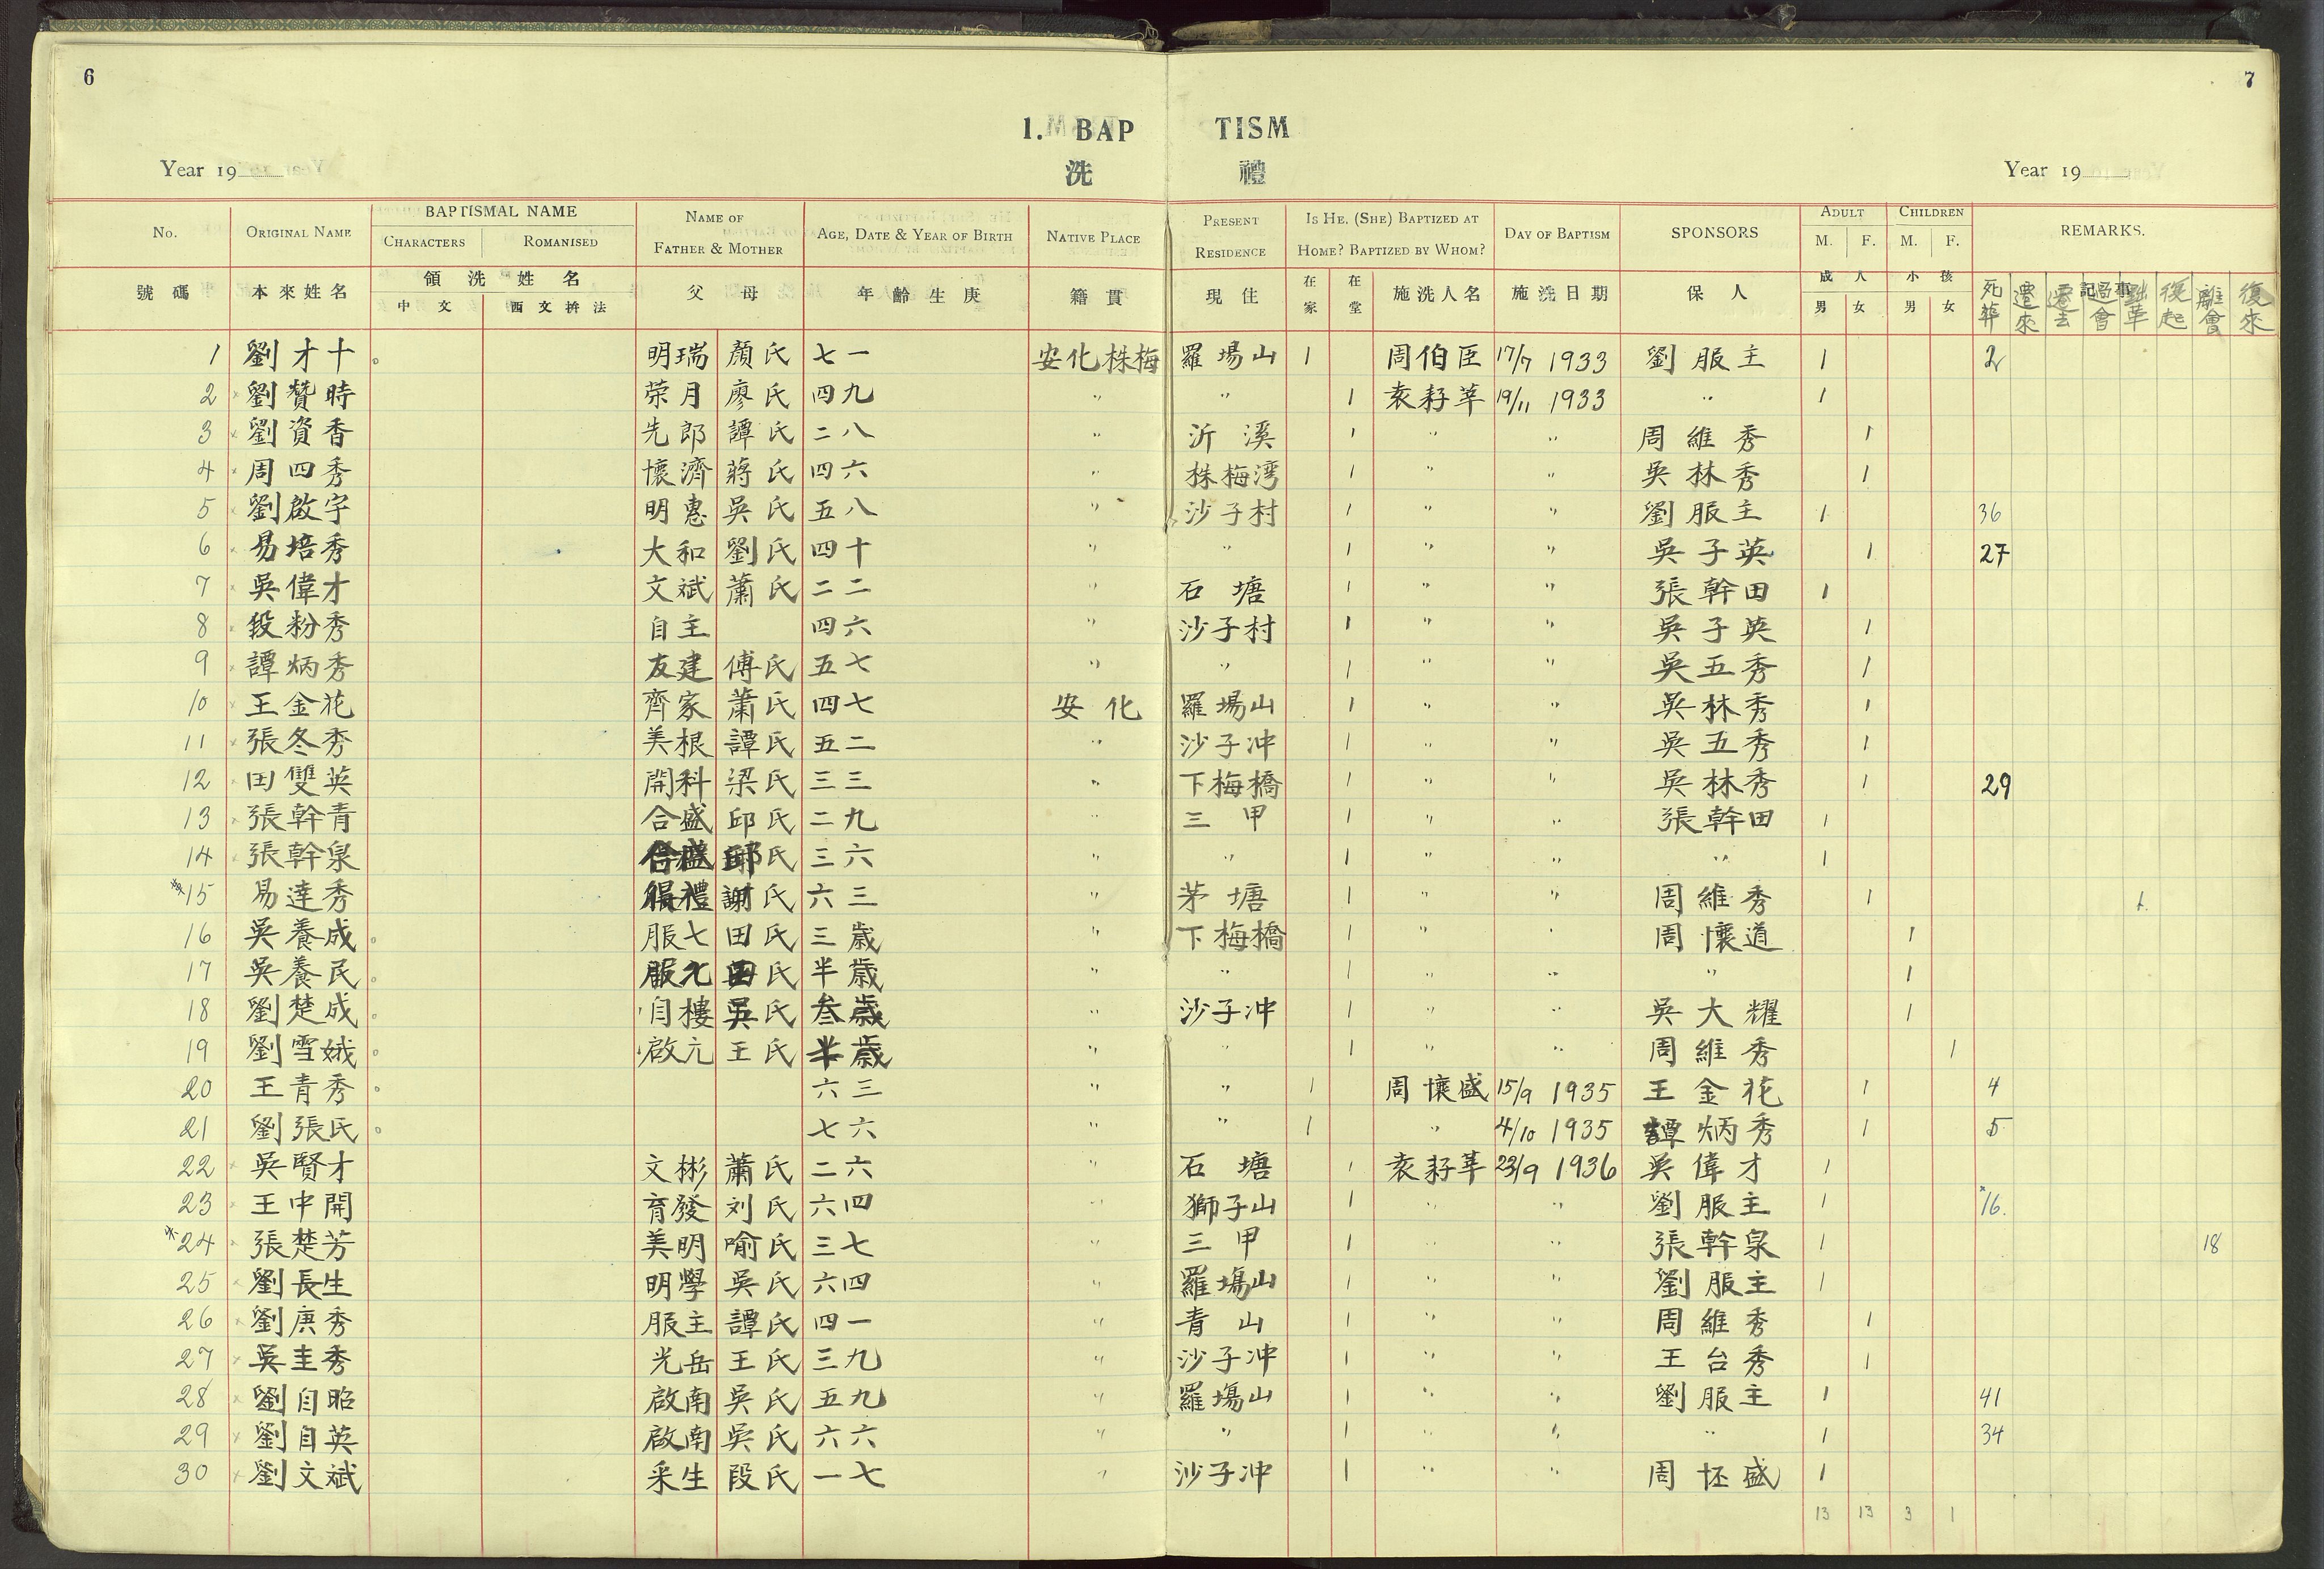 6
7
1. BAP TISM
洗 禮
Year 19 Year 19
No. ORIGINAL NAME BAPTISMAL NAME NAME OF FATHER & MOTHER AGE, DATE & YEAR OF BIRTH NATIVE PLACE PRESENT RESIDENCE IS HE, (SHE) BAPTIZED AT HOME? BAPTIZED BY WHOM? DAY OF BAPTISM SPONSORS ADULT CHILDREN REMARKS.
CHARACTERS ROMANISED M. F. M. F.
號碼 本來姓名 領洗姓名 父母 年齡生庚 籍貫 現住 在家 在堂 施洗人名 施洗日期 保人 成人 小孩 記事
中文 西文拚法 男 女 男 女 死葬 遷來 遷去 過會 黜革 復起 離會 復來
1 劉才十 。 明瑞 顏氏 七一 安化株梅 羅場山 1 周伯臣 17/7 1933 劉服主 1 2
2 × 劉贊時 榮月 廖氏 四九 〃 〃 1 袁籽莘 19/11 1933 〃 1
3 × 劉資香 先郎 譚氏 二八 〃 沂溪 1 〃 〃 周維秀 1
4 × 周四秀 懷濟 蔣氏 四六 〃 株梅湾 1 〃 〃 吳林秀 1
5 × 劉啟宇 明惠 吳氏 五八 〃 沙子村 1 〃 〃 劉服主 1 36
6 × 易培秀 大和 劉氏 四十 〃 〃 1 〃 〃 吳子英 1 27
7 × 吳偉才 文斌 蕭氏 二二 〃 石塘 1 〃 〃 張幹田 1
8 × 段粉秀 自主 四六 〃 沙子村 1 〃 〃 吳子英 1
9 × 譚炳秀 友建 傅氏 五七 〃 〃 1 〃 〃 吳五秀 1
10 × 王金花 齊家 蕭氏 四七 安化 羅場山 1 〃 〃 吳林秀 1
11 × 張冬秀 美根 譚氏 五二 〃 沙子冲 1 〃 〃 吳五秀 1
12 × 田雙英 開科 梁氏 三三 〃 下梅橋 1 〃 〃 吳林秀 1 29
13 × 張幹青 合盛 邱氏 二九 〃 三甲 1 〃 〃 張幹田 1
14 × 張幹泉 合盛 邱氏 三六 〃 〃 1 〃 〃 〃 1
15 易達秀 禮 謝氏 六三 〃 茅塘 1 〃 〃 周維秀 1 1.
16 吳養成 。 服七 田氏 三歲 〃 下梅橋 1 〃 〃 周懷道 1
17 吳養民 。 服七 田氏 半歲 〃 〃 1 〃 〃 〃 1
18 劉楚成 。 自樓 吳氏 叁歲 〃 沙子冲 1 〃 〃 吳大耀 1
19 劉雪娥 。 啟元 王氏 半歲 〃 〃 1 〃 〃 周維秀 1
20 王青秀 。 六三 〃 〃 1 周懷盛 15/9 1935 王金花 1 4
21 劉張氏 。 七六 〃 〃 1 〃 4/10 1935 譚炳秀 1 5
22 × 吳賢才 文彬 蕭氏 二六 〃 石塘 1 袁籽莘 23/9 1936 吳偉才 1
23 × 王中開 育發 刘氏 六四 〃 獅子山 1 〃 〃 劉服主 1 16.
24 × 張楚芳 美明 喻氏 三七 〃 三甲 1 〃 〃 張幹泉 1 18
25 × 劉長生 明學 吳氏 六四 〃 羅場山 1 〃 〃 劉服主 1
26 × 劉庚秀 服主 譚氏 四一 〃 青山 1 〃 〃 周維秀 1
27 × 吳圭秀 光岳 王氏 三九 〃 沙子冲 1 〃 〃 王台秀 1
28 × 劉自昭 啟南 吳氏 五九 〃 羅場山 1 〃 〃 劉服主 1 41
29 × 劉自英 啟南 吳氏 六六 〃 〃 1 〃 〃 〃 1 34
30 × 劉文斌 采生 段氏 一七 〃 沙子冲 1 〃 〃 周怌盛 1
13 13 3 1